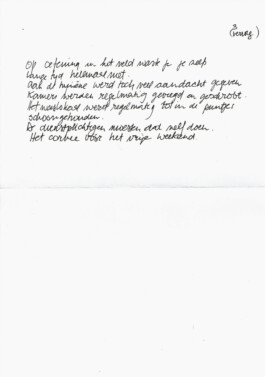 3
(vervolg)
Op oefening in het veld waste je je soep
lange tijd helemaal niet.
Aan de hygiëne werd toch veel aandacht gegeven
Kamers werden regelmatig geveegd en geschrobt.
Het wachtlokaal werd regelmatig tot in de puntjes
schoongehouden.
De dienstplichtigen moesten dat zelf doen.
Het corvee voor het vrije weekend